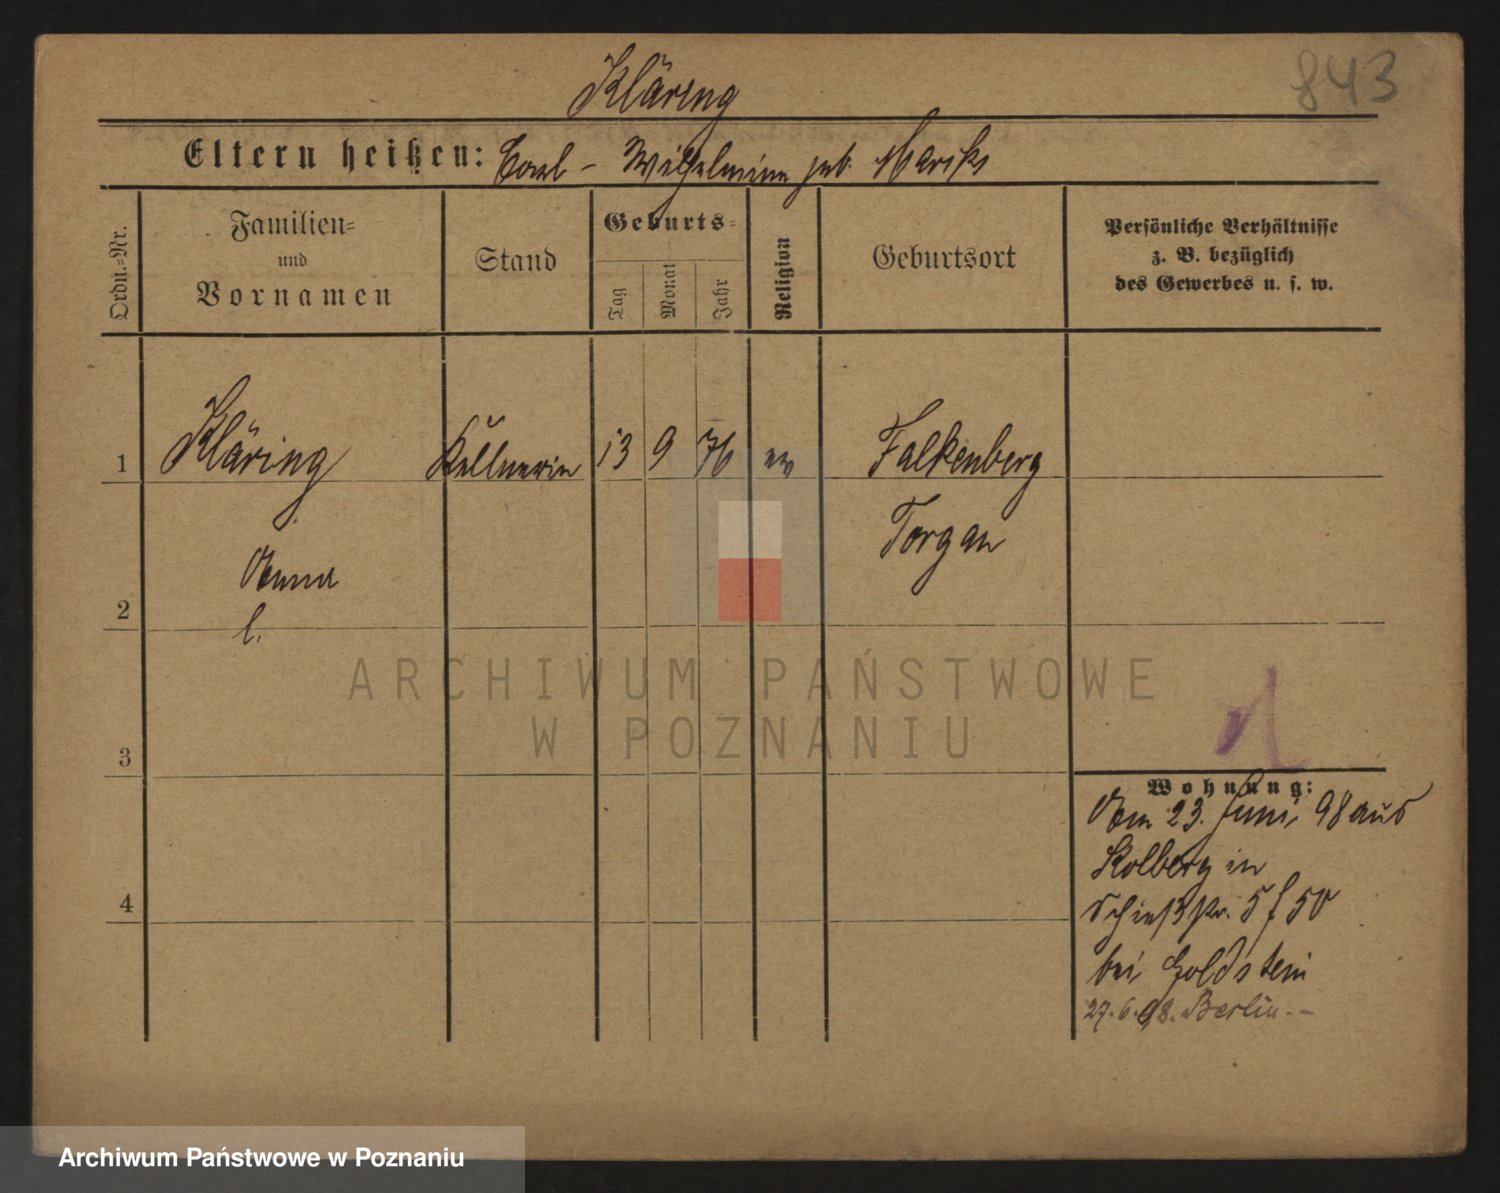 Kläring
843
Eltern heißen: Carl - Wilhelmine geb. Marks
Ordn.-Nr.
Familien-
und
Vornamen
Stand
Geburts-
Tag
Monat
Jahr
Religion
Geburtsort
Persönliche Verhältnisse
z. B. bezüglich
des Gewerbes u. s. w.
1 Kläring Kellnerin 13 9 76 ev Falkenberg
Torgau
Anna
2
l.
ARCHIWUM PAŃSTWOWE
W POZNANIU
3
Wohnung:
Am 23. Juni 98 aus
Kolberg in
Schießstr. 5 f 50
4
bei Goldstein
27.6.98. Berlin.-
Archiwum Państwowe w Poznaniu